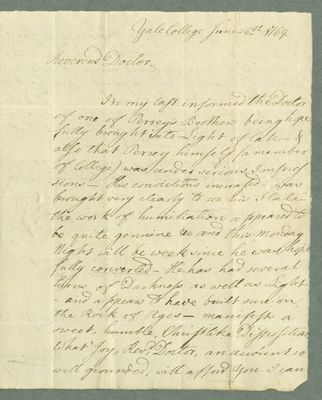 Yale College June 26th. 1764.
Reverend Doctor
In my last informed the Doctor
of one of Persey's Brothers being hope
fully brought into Light of late &
also that Persey himself (a member
of College) was under serious Impres
sions — His convictions increased — was
brought very clearly to see his State
the work of humiliation appeared to
be quite genuine & and this Monday
Night will be week since he was hope
fully converted — He has had several
turns of Darkness as well as Light
- and appears to have built sure on
the Rock of Ages — manifests a
sweet, humble, Christlike Disposition
What Joy, Revd. Doctor, an account so
well grounded, will afford you I can